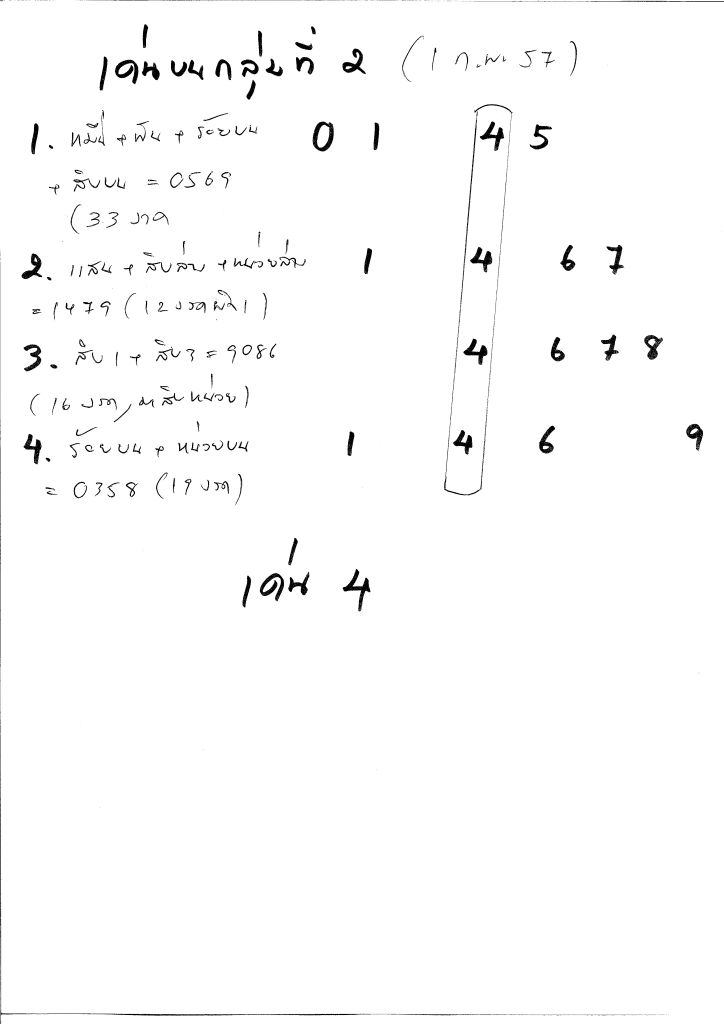 เด่นบนกลุ่มที่ 2 (1 ก.พ. 57)
1. หมื่น + พัน + ร้อยบน 0 1 4 5
+ สิบบน = 0569
(33 งวด
2. แสน + สิบล่าง + หน่วยล่าง 1 4 6 7
= 1479 (12 งวดผิด 1)
3. สิบ 1 + สิบ 3 = 9086 4 6 7 8
(16 งวด, สิบหน่วย)
4. ร้อยบน + หน่วยบน 1 4 6 9
= 0358 (19 งวด)
เด่น 4